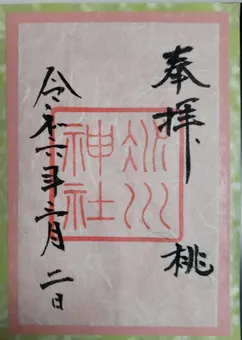 奉拝
桃
川
神社
令和六年三月二日